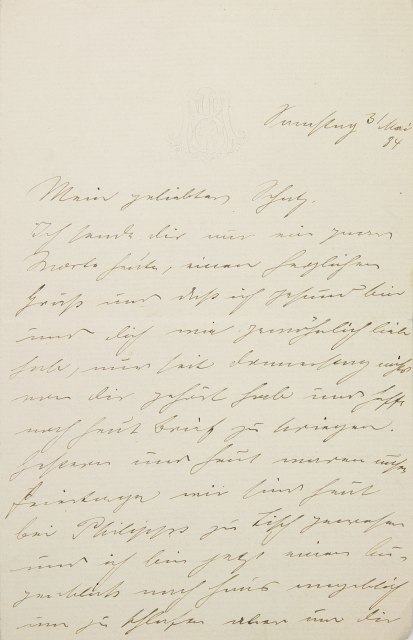 Samstag 31 Mai
84
Mein geliebter Schatz.
Ich sende dir nur ein paar
Worte heute, einen herzlichen
Gruß und daß ich gesund bin
und dich wie gewöhnlich liebe
habe, nur seit Donnerstag nichts
von dir gehört habe und hoffe
noch heut Brief zu kriegen.
Gestern und heut waren
Feiertage wir sind heut
bei Philipps zu Tisch gewesen
und ich bin jetzt einen Au-
genblick nach Haus angeblich
um zu schlafen aber um dir